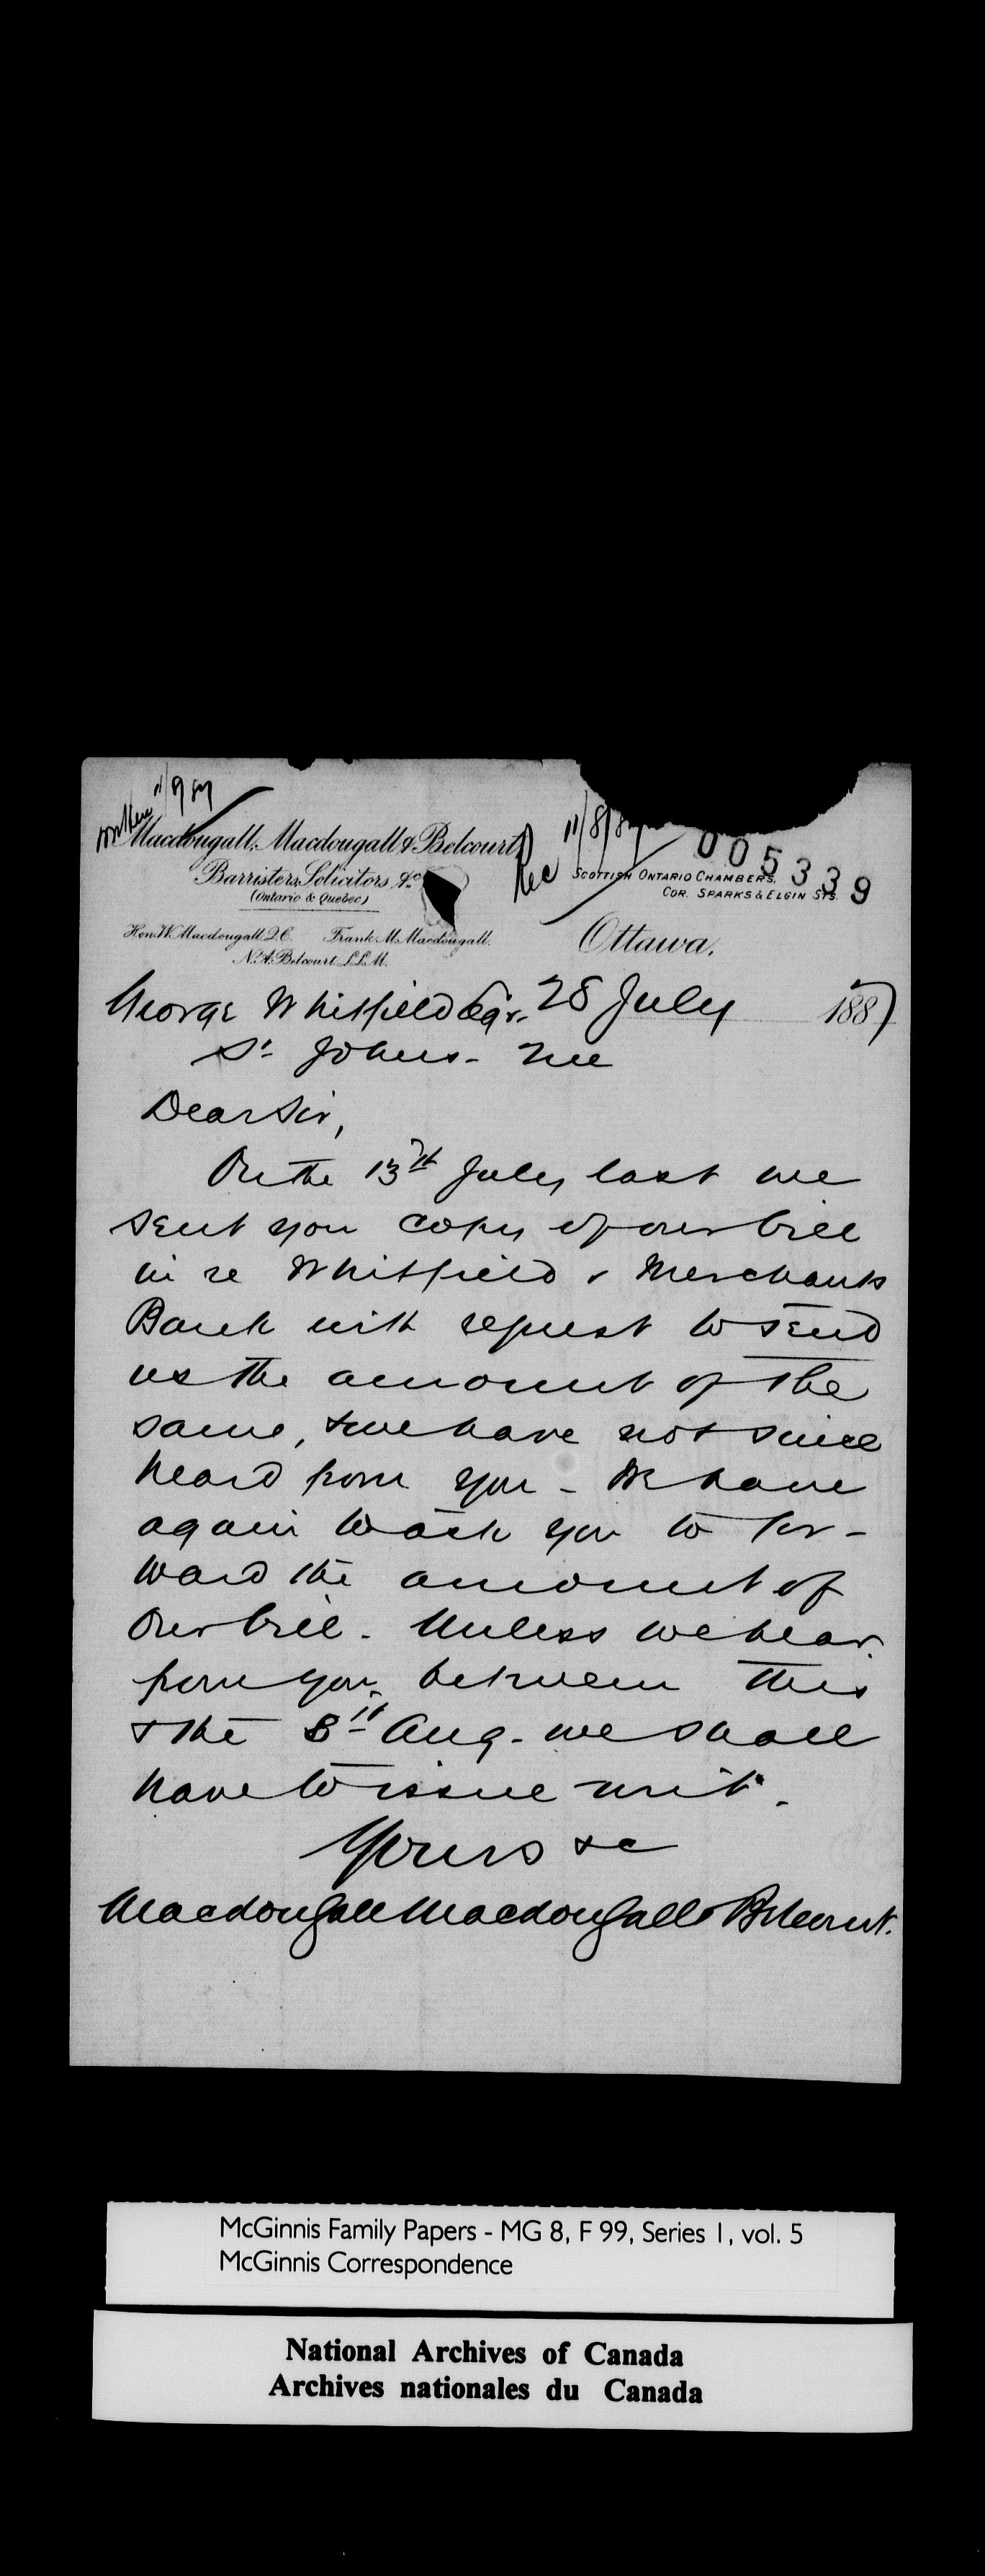 11/9/87
Macdougall, Macdougall & Belcourt,
Barristers, Solicitors, &c.
(Ontario & Quebec)
Hon. W. Macdougall Q.C. Frank M. Macdougall.
N. A. Belcourt L.L.M.
Rec 11/8/87
005339
SCOTTISH ONTARIO CHAMBERS,
COR. SPARKS & ELGIN STS.
Ottawa,
28 July 1887
George Whitfield Esqr.
St Johns - Que
Dear Sir,
On the 13th July last we
sent you copy of our bill
in re Whitfield v Merchants
Bank with request to send
us the amount of the
same, & we have not since
heard from you - We have
again to ask you to for-
ward the amount of
our bill - Unless we hear
from you between this
& the 8th Aug - we shall
have to issue writ.
Yours &c
Macdougall Macdougall & Belcourt.
McGinnis Family Papers - MG 8, F 99, Series 1, vol. 5
McGinnis Correspondence
National Archives of Canada
Archives nationales du Canada